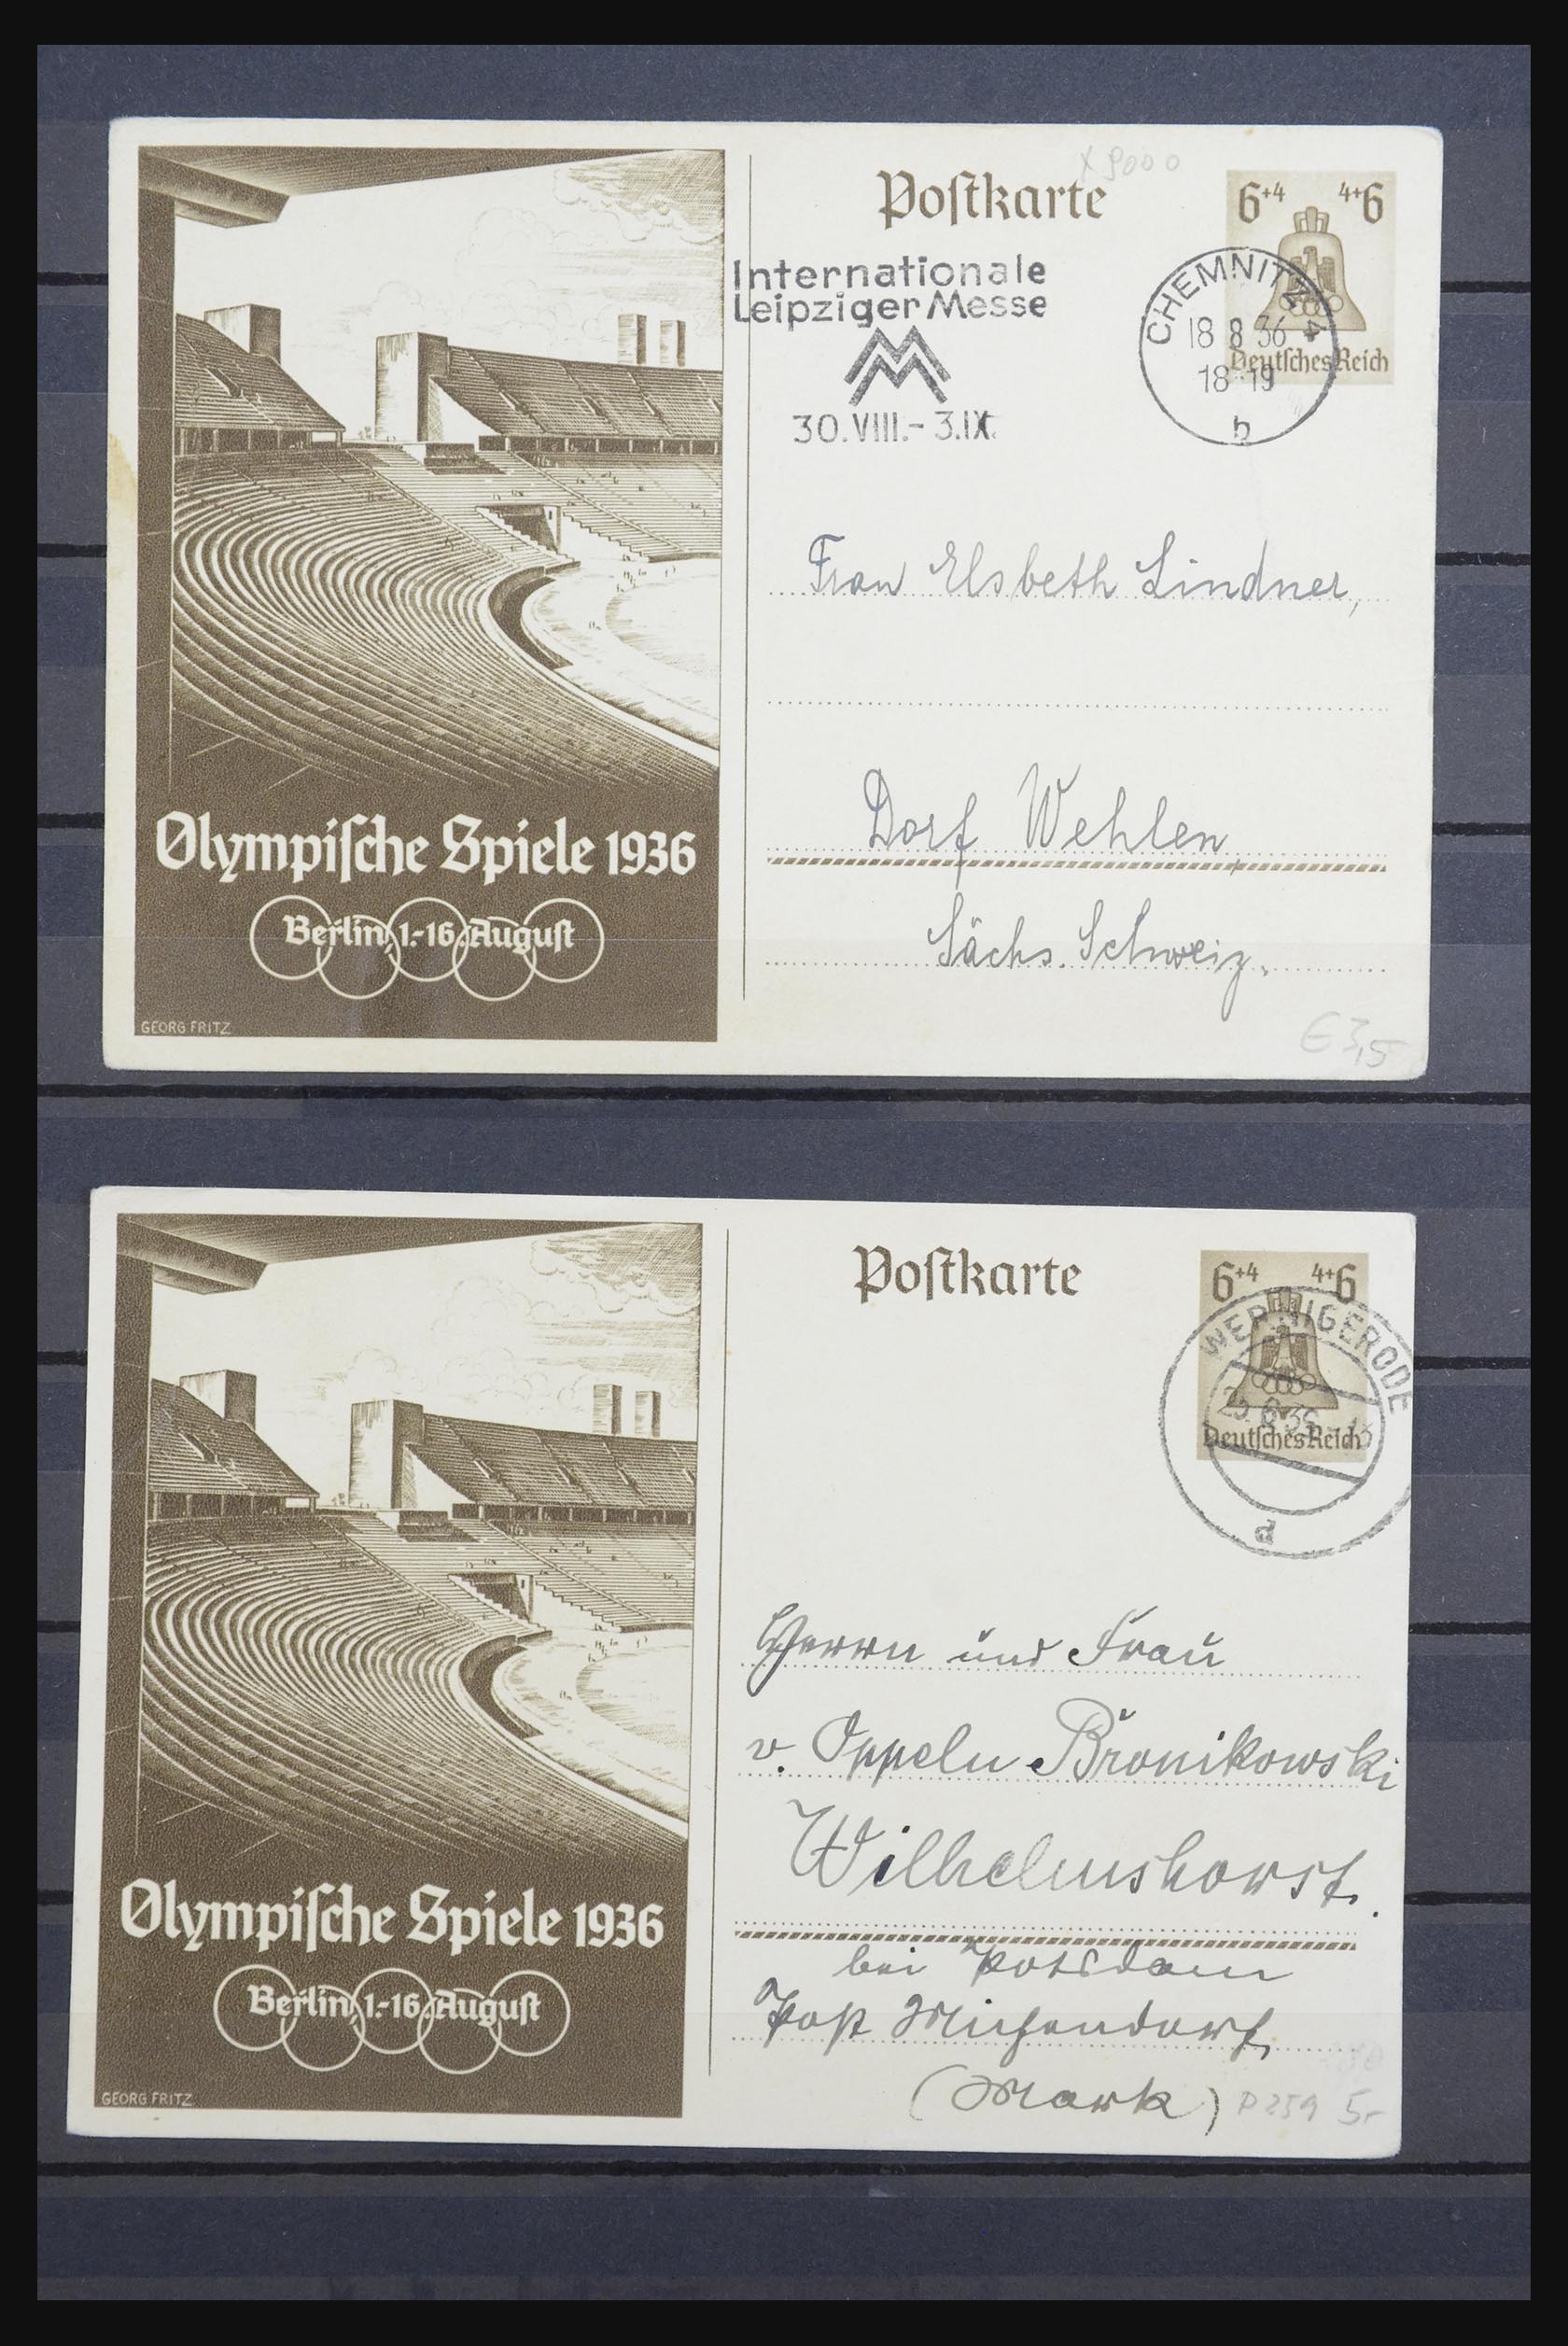 Postkarte
x 9000
6+4 4+6
Deutsches Reich
Internationale
Leipziger Messe
30.VIII.-3.IX.
CHEMNITZ 4
18 8 36
18-19
b
Frau Elsbeth Lindner,
Dorf Wehlen,
Sächs. Schweiz.
Olympische Spiele 1936
Berlin, 1.-16. August
GEORG FRITZ
€3,5
Postkarte
6+4 4+6
Deutsches Reich
WERNIGERODE
d
Herrn und Frau
v. Oppeln Bronikowski
Wilhelmshorst.
bei Potsdam
Post Michendorf,
(Mark)
P259 5-
Olympische Spiele 1936
Berlin, 1.-16. August
GEORG FRITZ